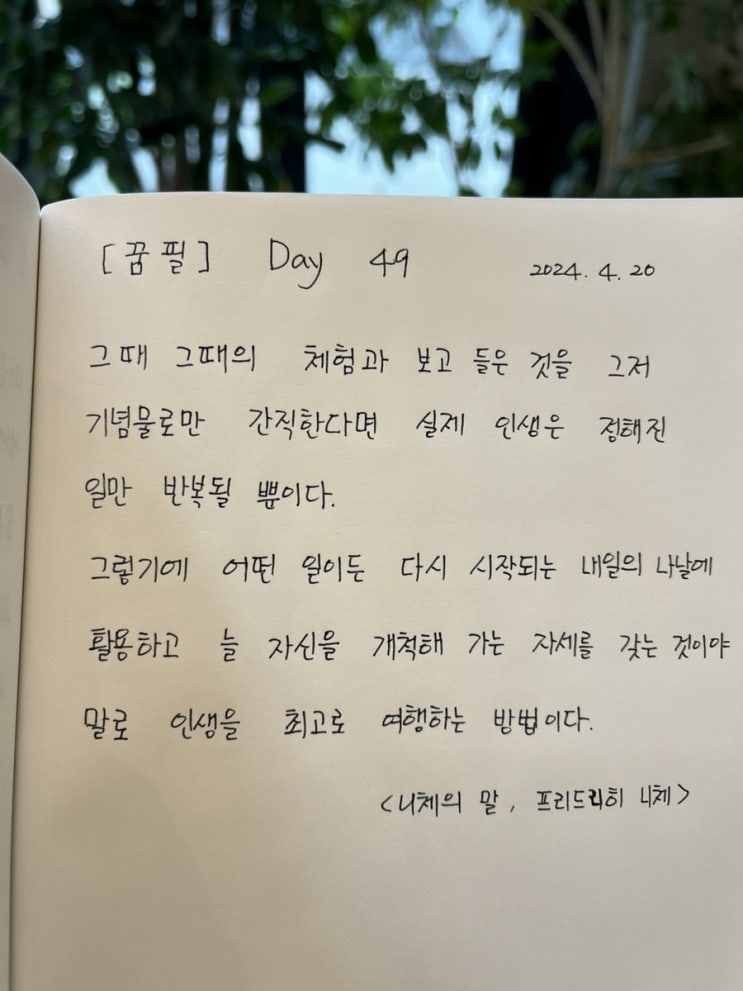 [꿈필] Day 49 2024. 4. 20
그때 그때의 체험과 보고 들은 것을 그저
기념물로만 간직한다면 실제 인생은 정해진
일만 반복될 뿐이다.
그렇기에 어떤 일이든 다시 시작되는 내일의 나날에
활용하고 늘 자신을 개척해 가는 자세를 갖는 것이야
말로 인생을 최고로 여행하는 방법이다.
<니체의 말, 프리드리히 니체>